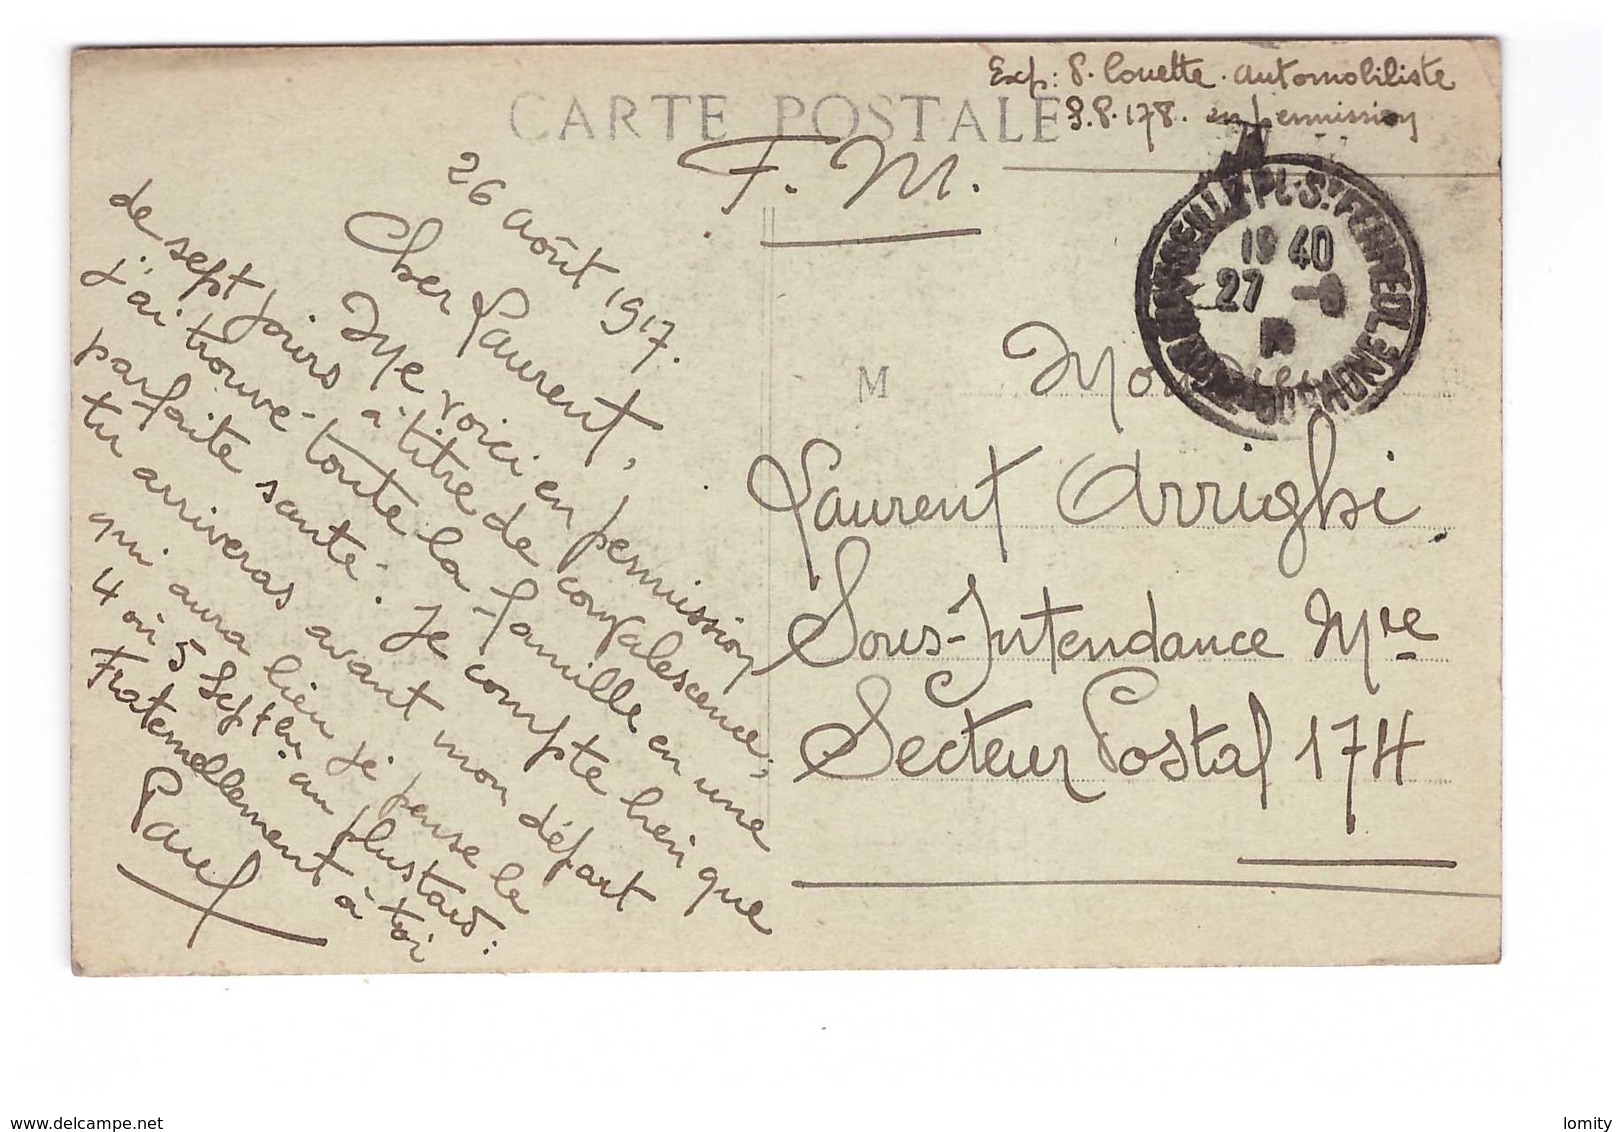 Exp: P. Couette. automobiliste
S.P. 178. en permission
CARTE POSTALE
F.M.
26 Août 1917.
Cher Laurent,
Me voici en permission
de sept jours à titre de convalescence;
j'ai trouvé toute la famille en une
parfaite santé. Je compte bien que
tu arriveras avant mon départ
qui aura lieu je pense le
4 ou 5 Septem. au plus tard:
Fraternellement à toi
Paul
M
19 40
27
Laurent Arrighi
Sous-Intendance Mre
Secteur Postal 174
www.delcampe.net
lomity